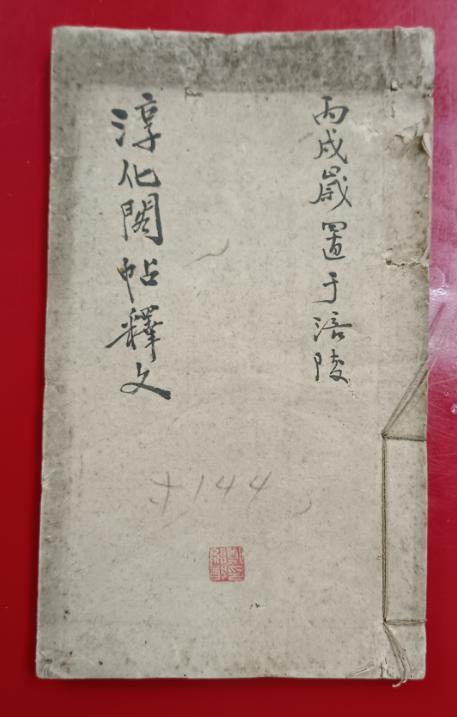 丙戌歲置于涪陵
淳化閣帖釋文
144